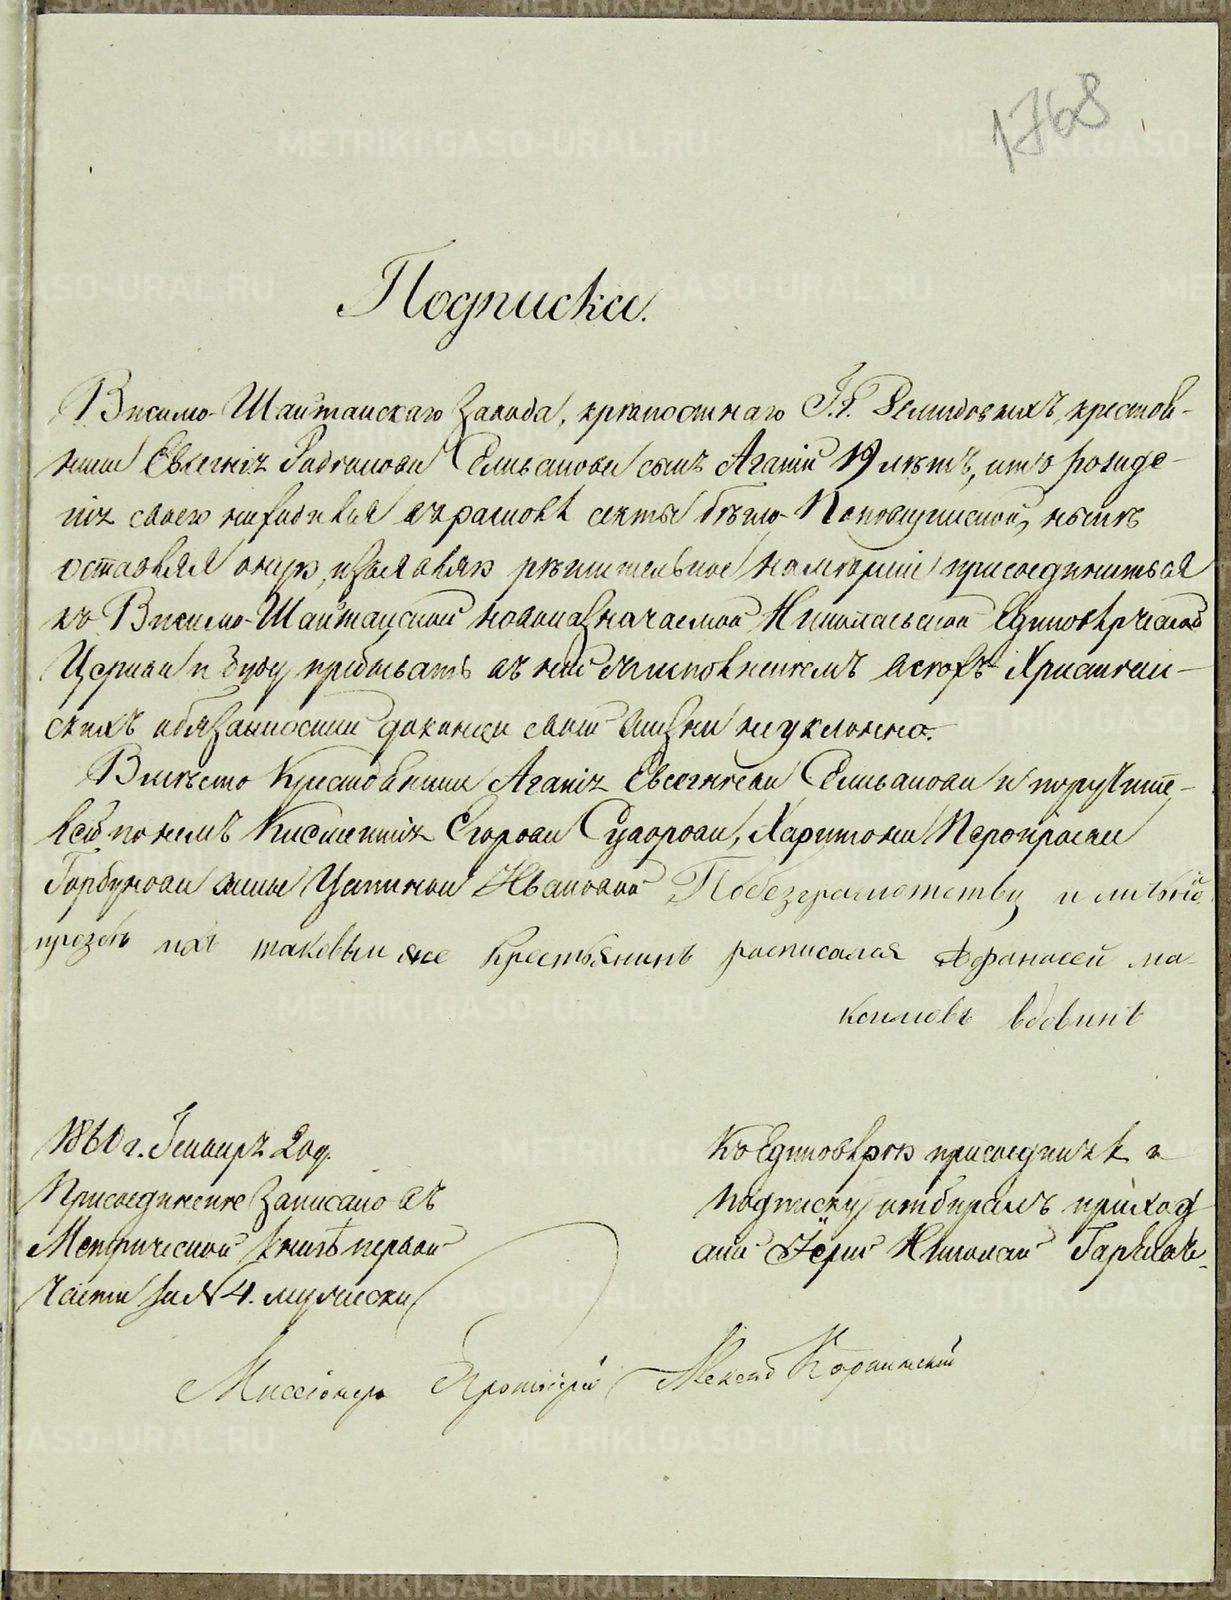 1768
Подписка.
Висимо-Шайтанскаго завода, крепостнаго Г.г. Демидовыхъ, крестьян-
Евсегнія Емельянова сынъ Агапій 19 летъ, отъ рожде-
нія своего въ расколе секты бегло-Поповщинской, ныне
оставляя оную, изъявляю решительное намереніе присоединиться
къ Висимо-Шайтанской новоназначаемой Николаевской Единоверческой
Церкви и буду пребывать въ ней съ исполненіемъ всехъ Христіан-
скихъ обязанностей до конца своей жизни неуклонно.
Вместо крестьянина Агапія Евсегнеева Емельянова и поручите-
лей по немъ Егорова Суворова, Харитона
Горбунова жены Устиньи Ивановой По безграмотству и личной
прозбе ихъ таковый же Крестьянинъ росписался Афанасей ма-
ксимовъ вдовинъ
1860 г. Генваря 2 дня.
Присоединеніе записано въ
Метрической книге первой
части за № 4. мужески
Къ Единоверію присоединилъ и
подписку отбиралъ приход
скій Іерей Николай
Миссіонеръ Протоіерей Александ
METRIKI.GASO-URAL.RU